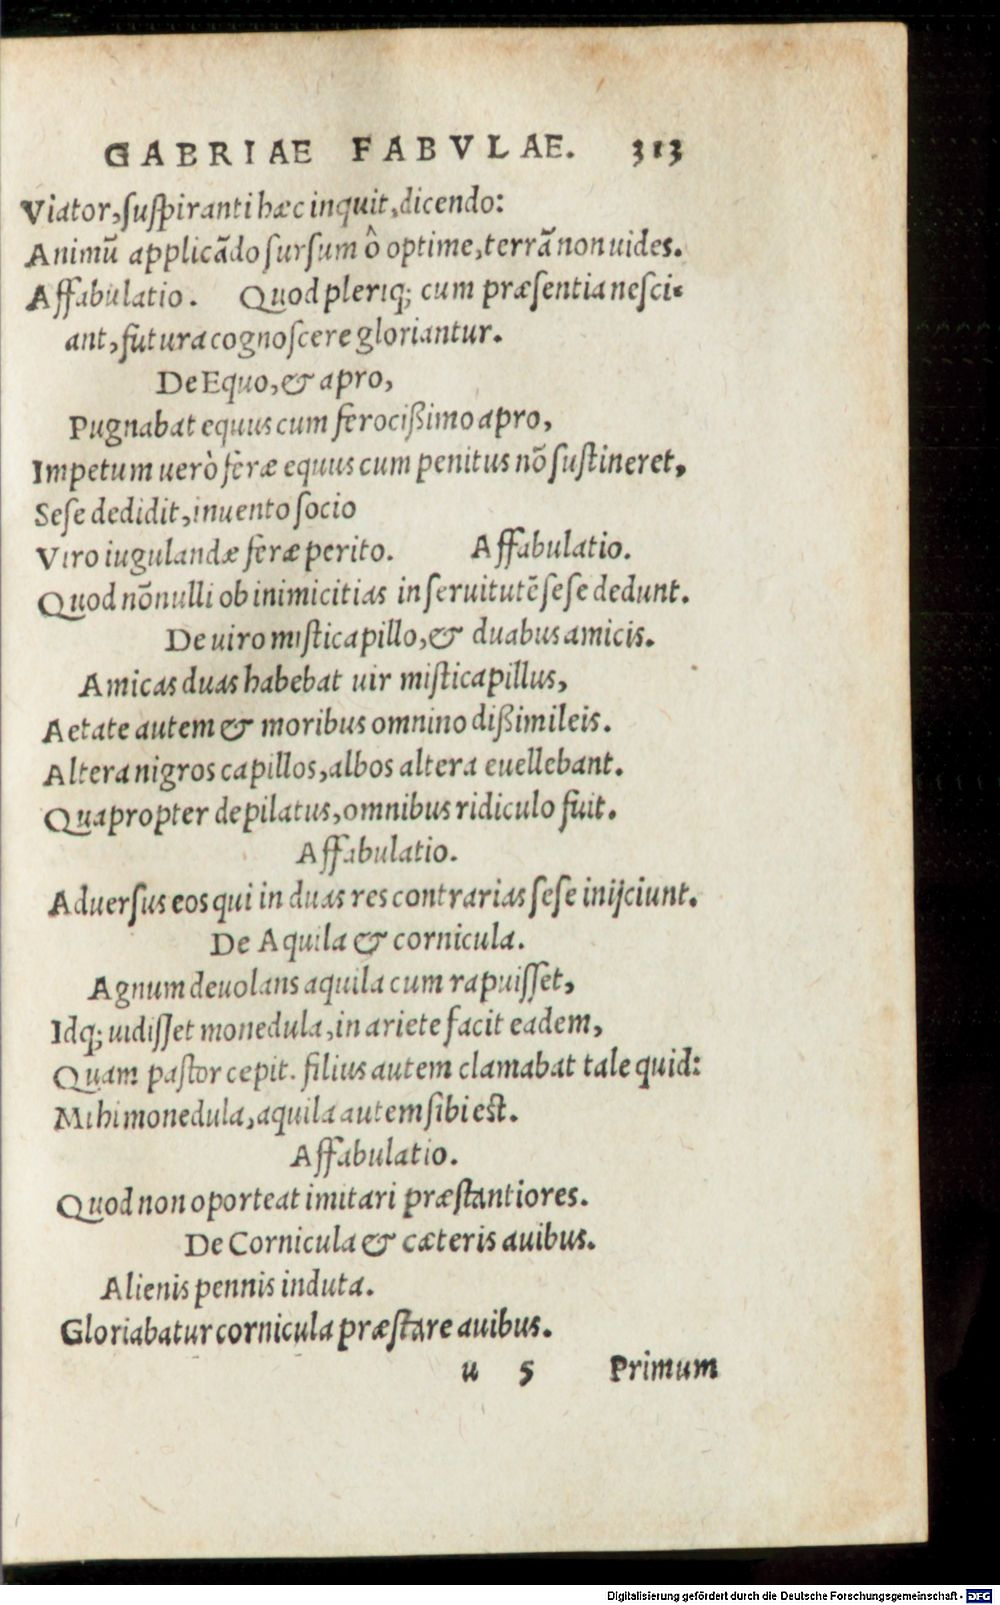 GABRIAE FABVLAE. 313
Viator, suspiranti hæc inquit, dicendo:
Animũ applicãdo sursum ô optime, terrã non uides.
Affabulatio. Quod pleriq; cum præsentia nesci-
ant, futura cognoscere gloriantur.
De Equo, & apro,
Pugnabat equus cum ferocißimo apro,
Impetum uerò feræ equus cum penitus nõ sustineret,
Sese dedidit, inuento socio
Viro iugulandæ feræ perito. Affabulatio.
Quod nõnulli ob inimicitias in seruitutẽ sese dedunt.
De uiro misticapillo, & duabus amicis.
Amicas duas habebat uir misticapillus,
Aetate autem & moribus omnino dißimileis.
Altera nigros capillos, albos altera euellebant.
Quapropter depilatus, omnibus ridiculo fuit.
Affabulatio.
Aduersus eos qui in duas res contrarias sese inijciunt.
De Aquila & cornicula.
Agnum deuolans aquila cum rapuisset,
Idq; uidisset monedula, in ariete facit eadem,
Quam pastor cepit. filius autem clamabat tale quid:
Mihi monedula, aquila autem sibi est.
Affabulatio.
Quod non oporteat imitari præstantiores.
De Cornicula & cæteris auibus.
Alienis pennis induta.
Gloriabatur cornicula præstare auibus.
u 5 Primum
Digitalisierung gefördert durch die Deutsche Forschungsgemeinschaft - DFG